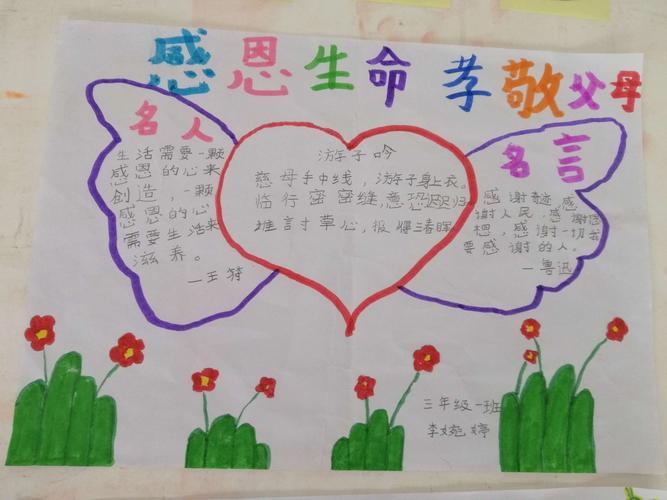 感恩生命 孝敬父母
名人
生活需要一颗
感恩的心来
创造，一颗
感恩的心
需要生活来
滋养。
—王符
游子吟
慈母手中线，游子身上衣。
临行密密缝意恐迟迟归
谁言寸草心，报得三春晖
名言
感谢命运，感
谢人民，感谢思
想，感谢一切我
要感谢的人。
—鲁迅
三年级一班
李婉婷